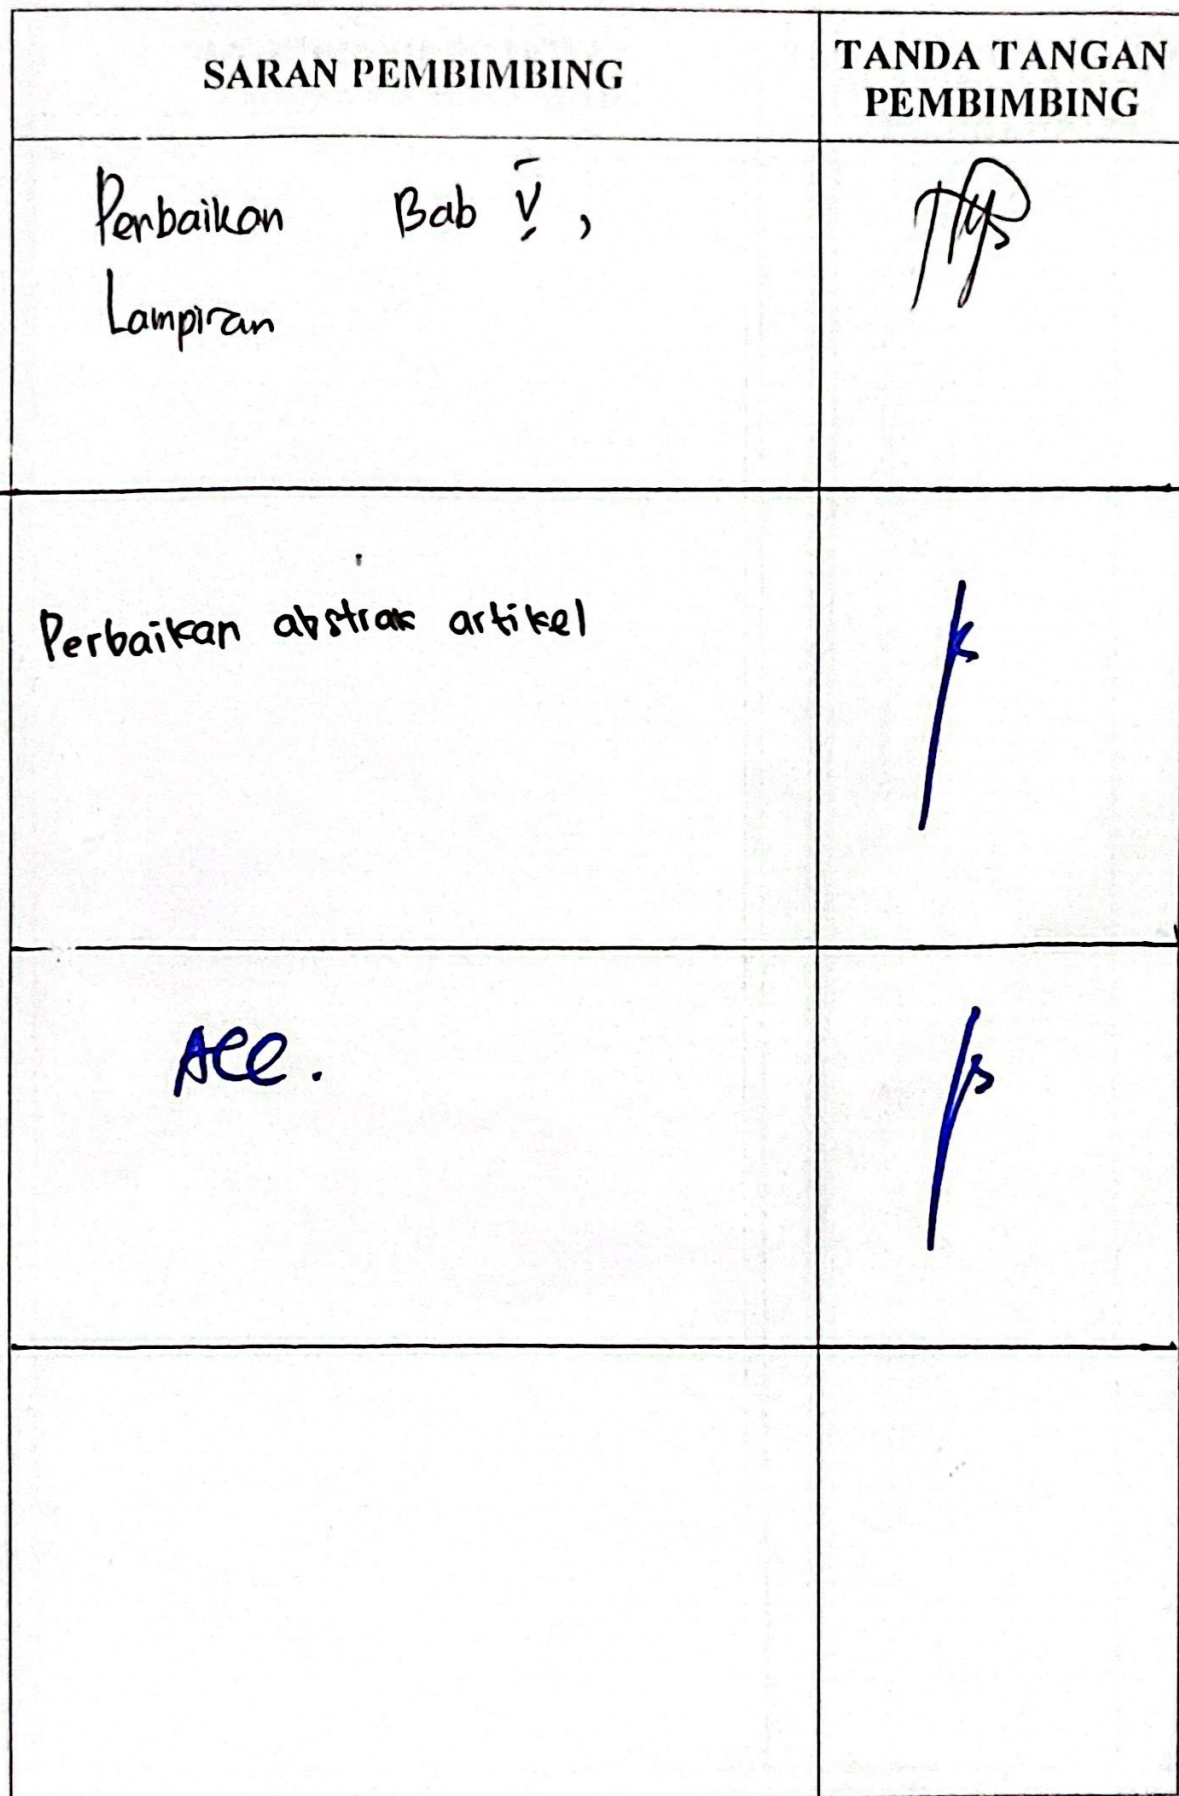 SARAN PEMBIMBING
TANDA TANGAN
PEMBIMBING
Perbaikan Bab V,
Lampiran
Perbaikan abstrak artikel
Acc.